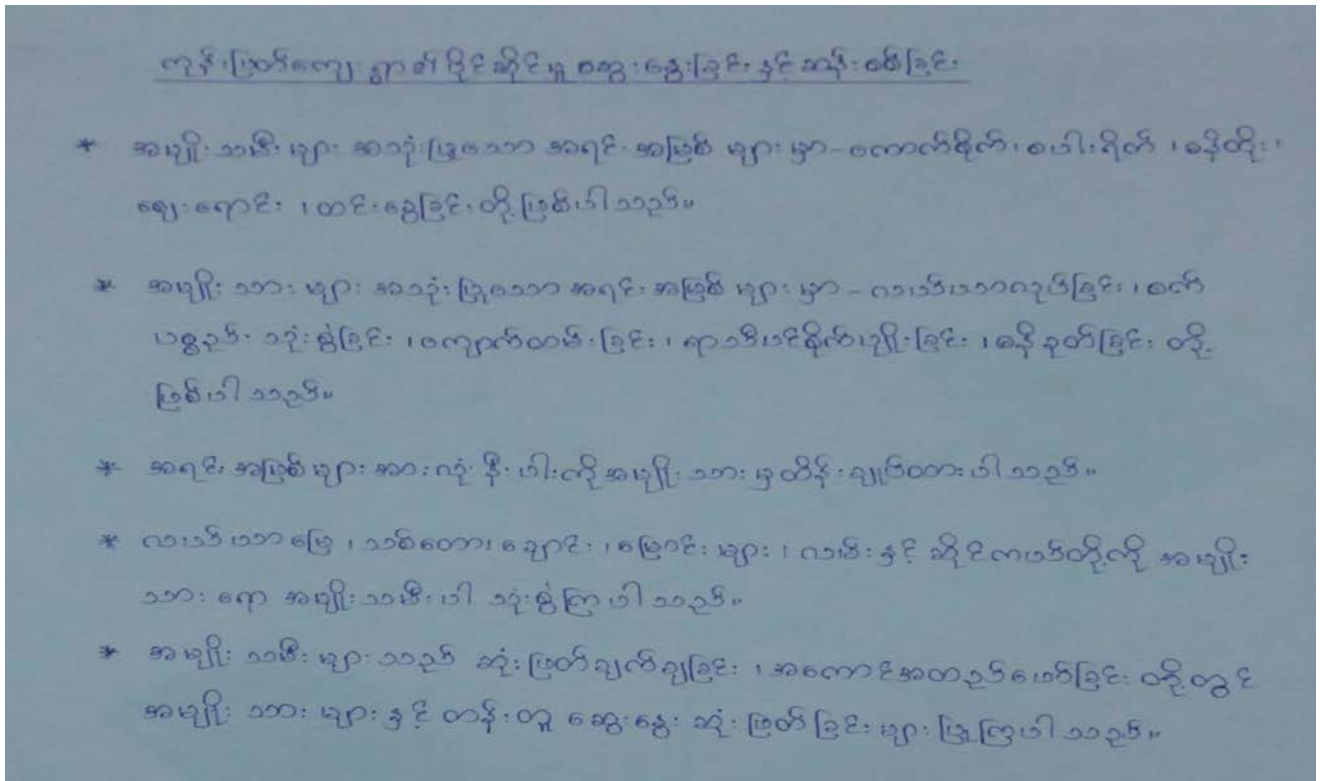 ကုန်းဖြတ်ကျေးရွာ၏ ပိုင်ဆိုင်မှု ဆွေးနွေးခြင်းနှင့် ဆန်းစစ်ခြင်း
* အမျိုးသမီးများ အသုံးပြုသော အရင်းအမြစ်များမှာ - ကောက်စိုက်၊ စပါးရိတ်၊ စနိုတိုး၊
ဈေးရောင်း၊ ထင်းခွေခြင်းတို့ ဖြစ်ပါသည်။
* အမျိုးသားများ အသုံးပြုသော အရင်းအမြစ်များမှာ - လယ်ယာလုပ်ခြင်း၊ စက်
ပစ္စည်းသုံးစွဲခြင်း၊ ကျောက်ထမ်းခြင်း၊ ရာသီပင်စိုက်ပျိုးခြင်း၊ စနိုခုတ်ခြင်း တို့
ဖြစ်ပါသည်။
* အရင်းအမြစ်များအားလုံးနီးပါးကို အမျိုးသားမှထိန်းချုပ်ထားပါသည်။
* လယ်ယာမြေ၊ သစ်တော၊ ချောင်း၊ မြောင်းများ၊ လမ်းနှင့် ဆိုင်ကယ်တို့ကို အမျိုး
သားရော အမျိုးသမီးပါ သုံးစွဲကြပါသည်။
* အမျိုးသမီးများသည် ဆုံးဖြတ်ချက်ချခြင်း၊ အကောင်အထည်ဖော်ခြင်း တို့တွင်
အမျိုးသားများနှင့် တန်းတူ ဆွေးနွေးဆုံးဖြတ်ခြင်းများ ပြုကြပါသည်။